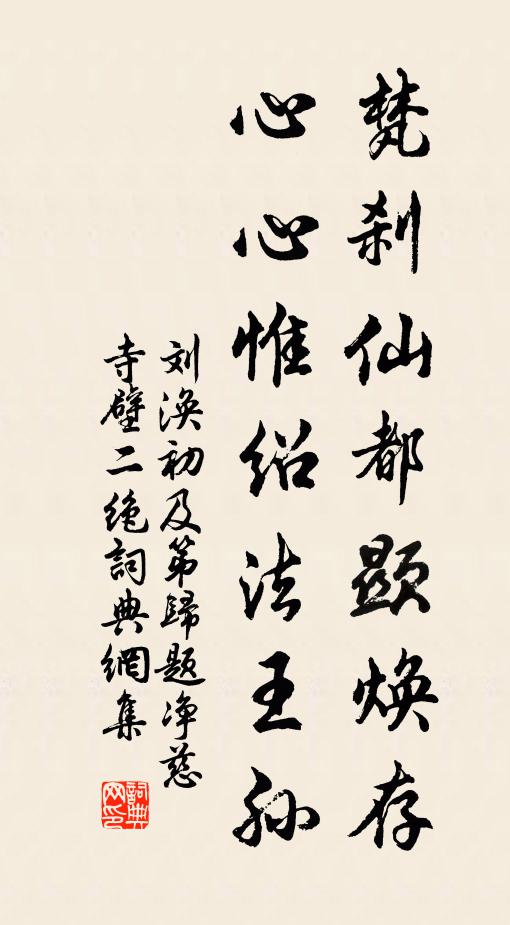 梵刹仙都顕煥存
心心惟绍法王孙
刘渙初及第歸题净慈
寺壁二绝詞典網集
詞典网印